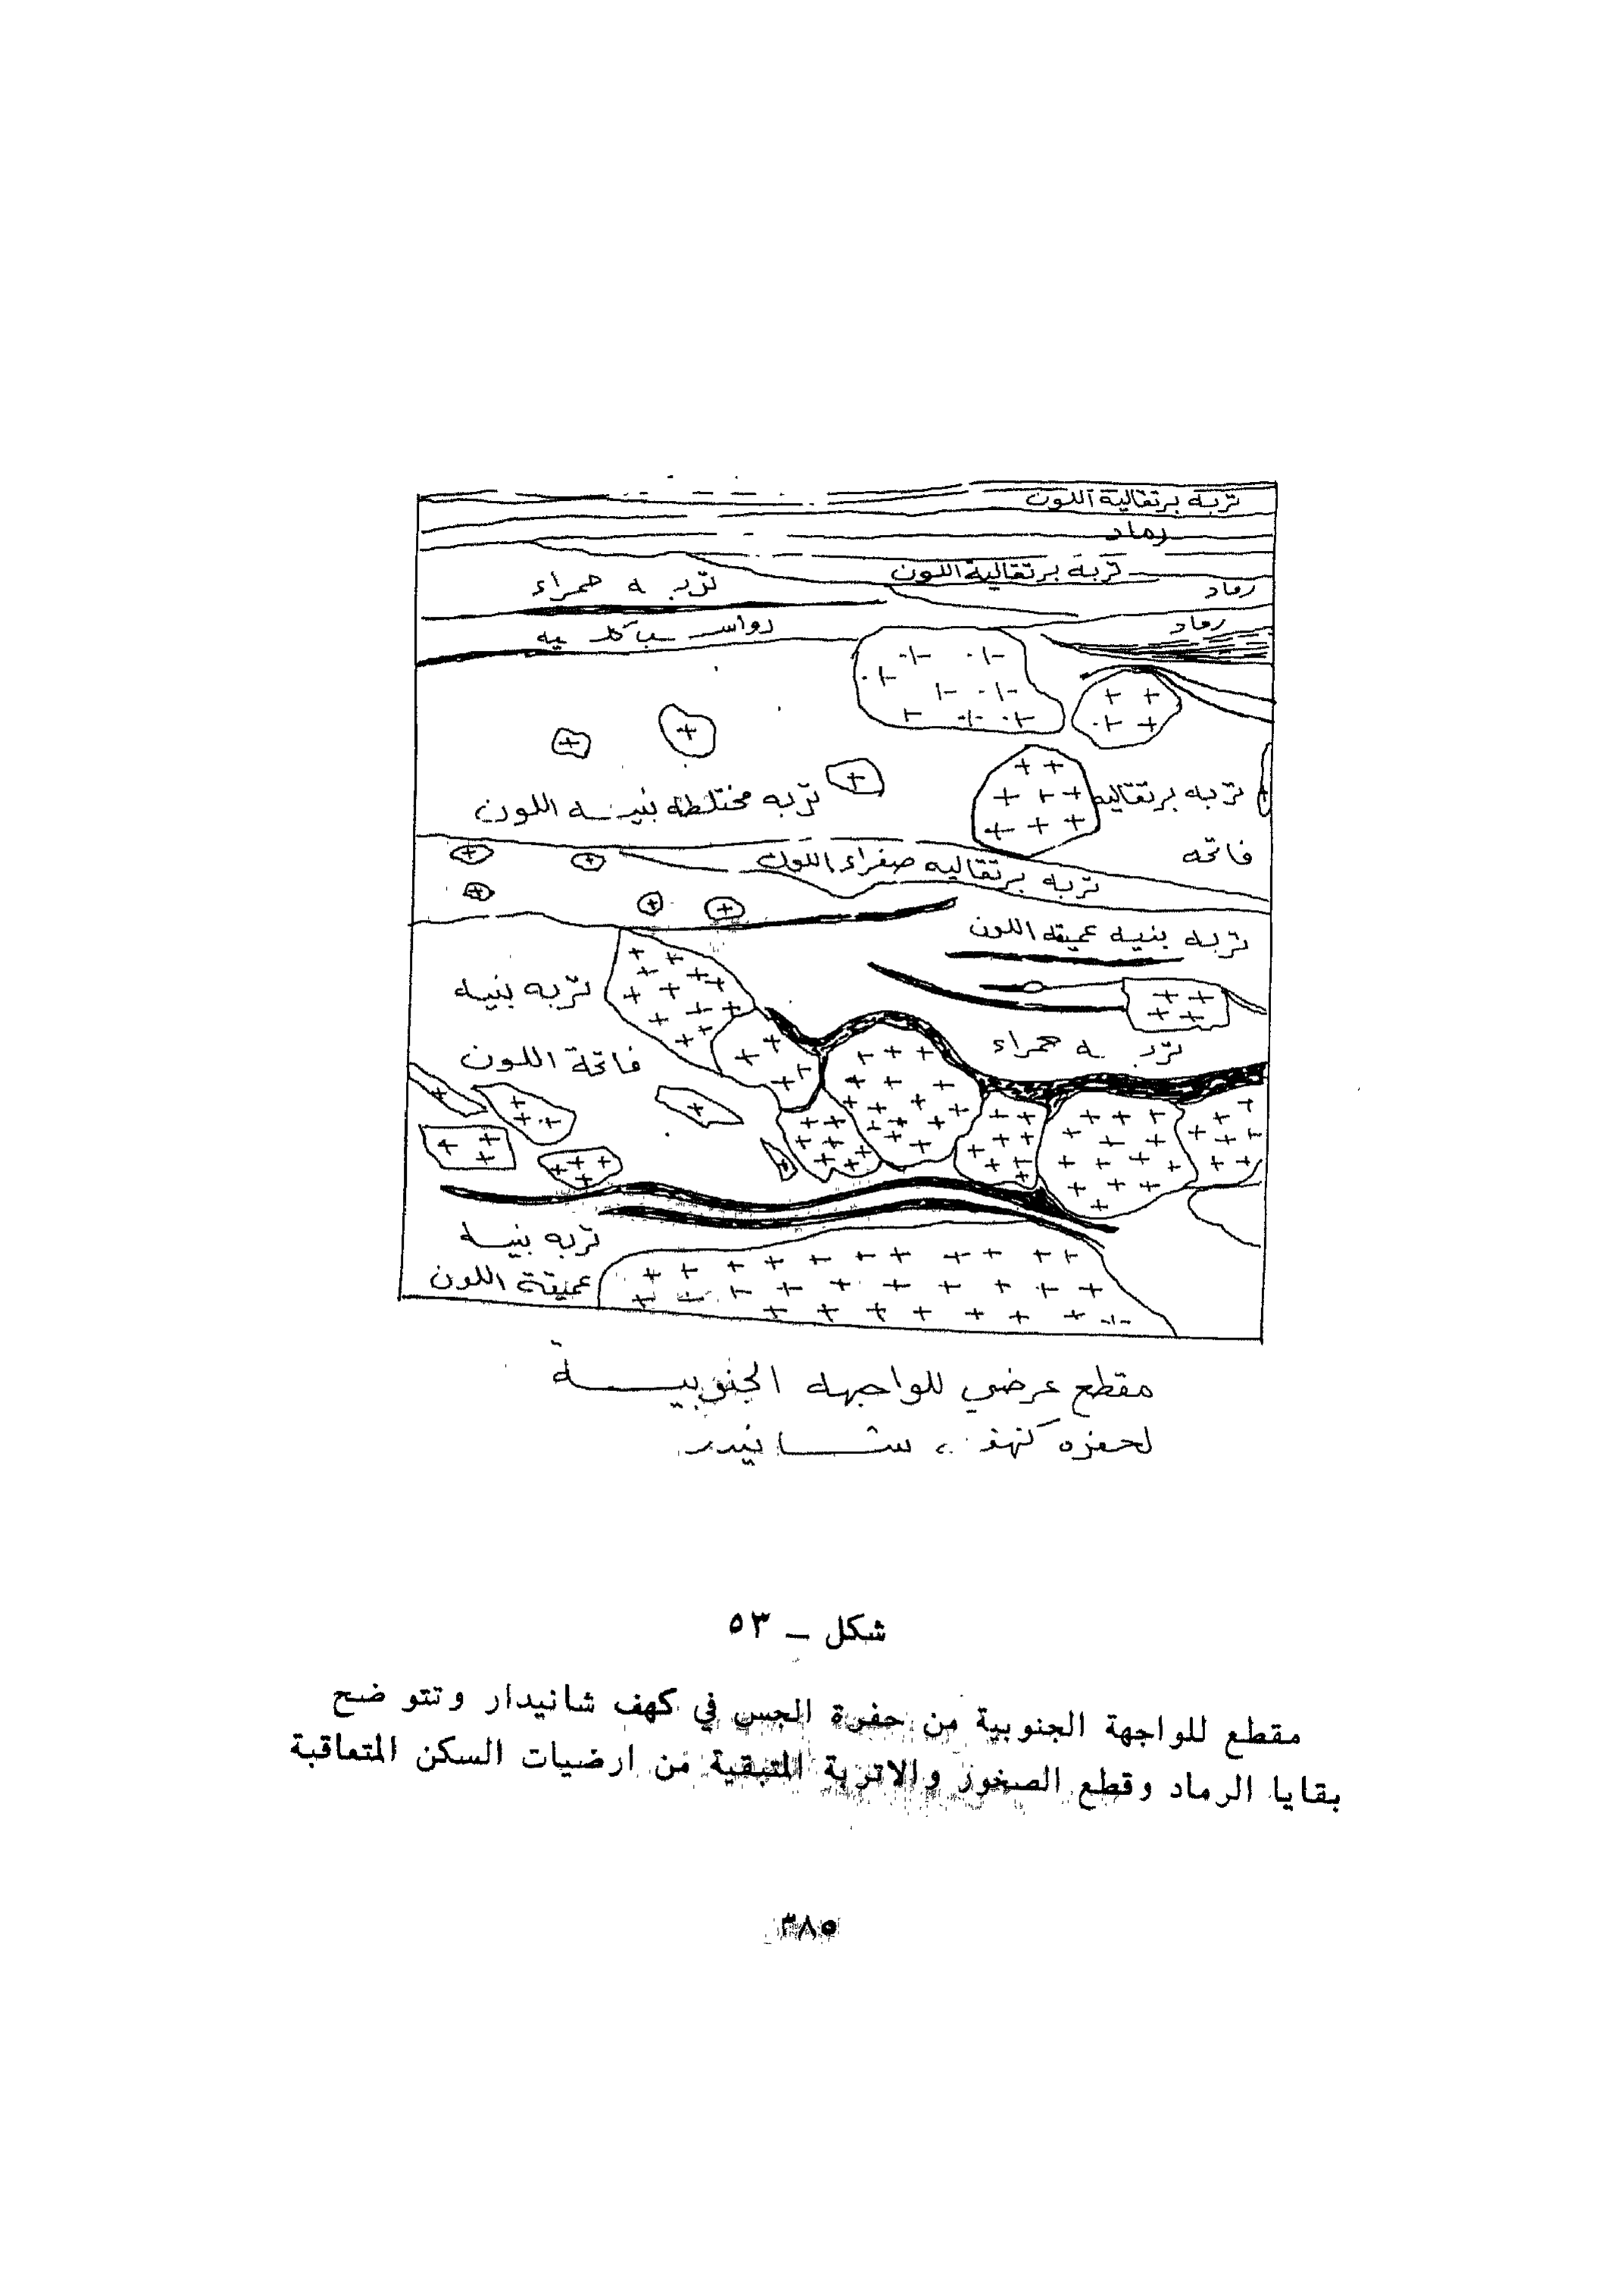 تربه برتقالية اللون
رماد
تربه برتقالية اللون
تربه حمراء
رماد
رواسب كلسيه
رماد
تربه مختلطه بنيه اللون
تربه برتقاليه
فاتحه
تربه برتقاليه صفراء اللون
تربه بنيه عميقه اللون
تربه بنيه
فاتحة اللون
تربه حمراء
تربه بنيه
عميقة اللون
مقطع عرضي للواجهه الجنوبيـــة
لحفره كهف شانيدر
شكل ــ ٥٣
مقطع للواجهة الجنوبية من حفرة الجس في كهف شانيدار وتتوضح
بقايا الرماد وقطع الصخور والاتربة المتبقية من ارضيات السكن المتعاقبة
٣٨٥